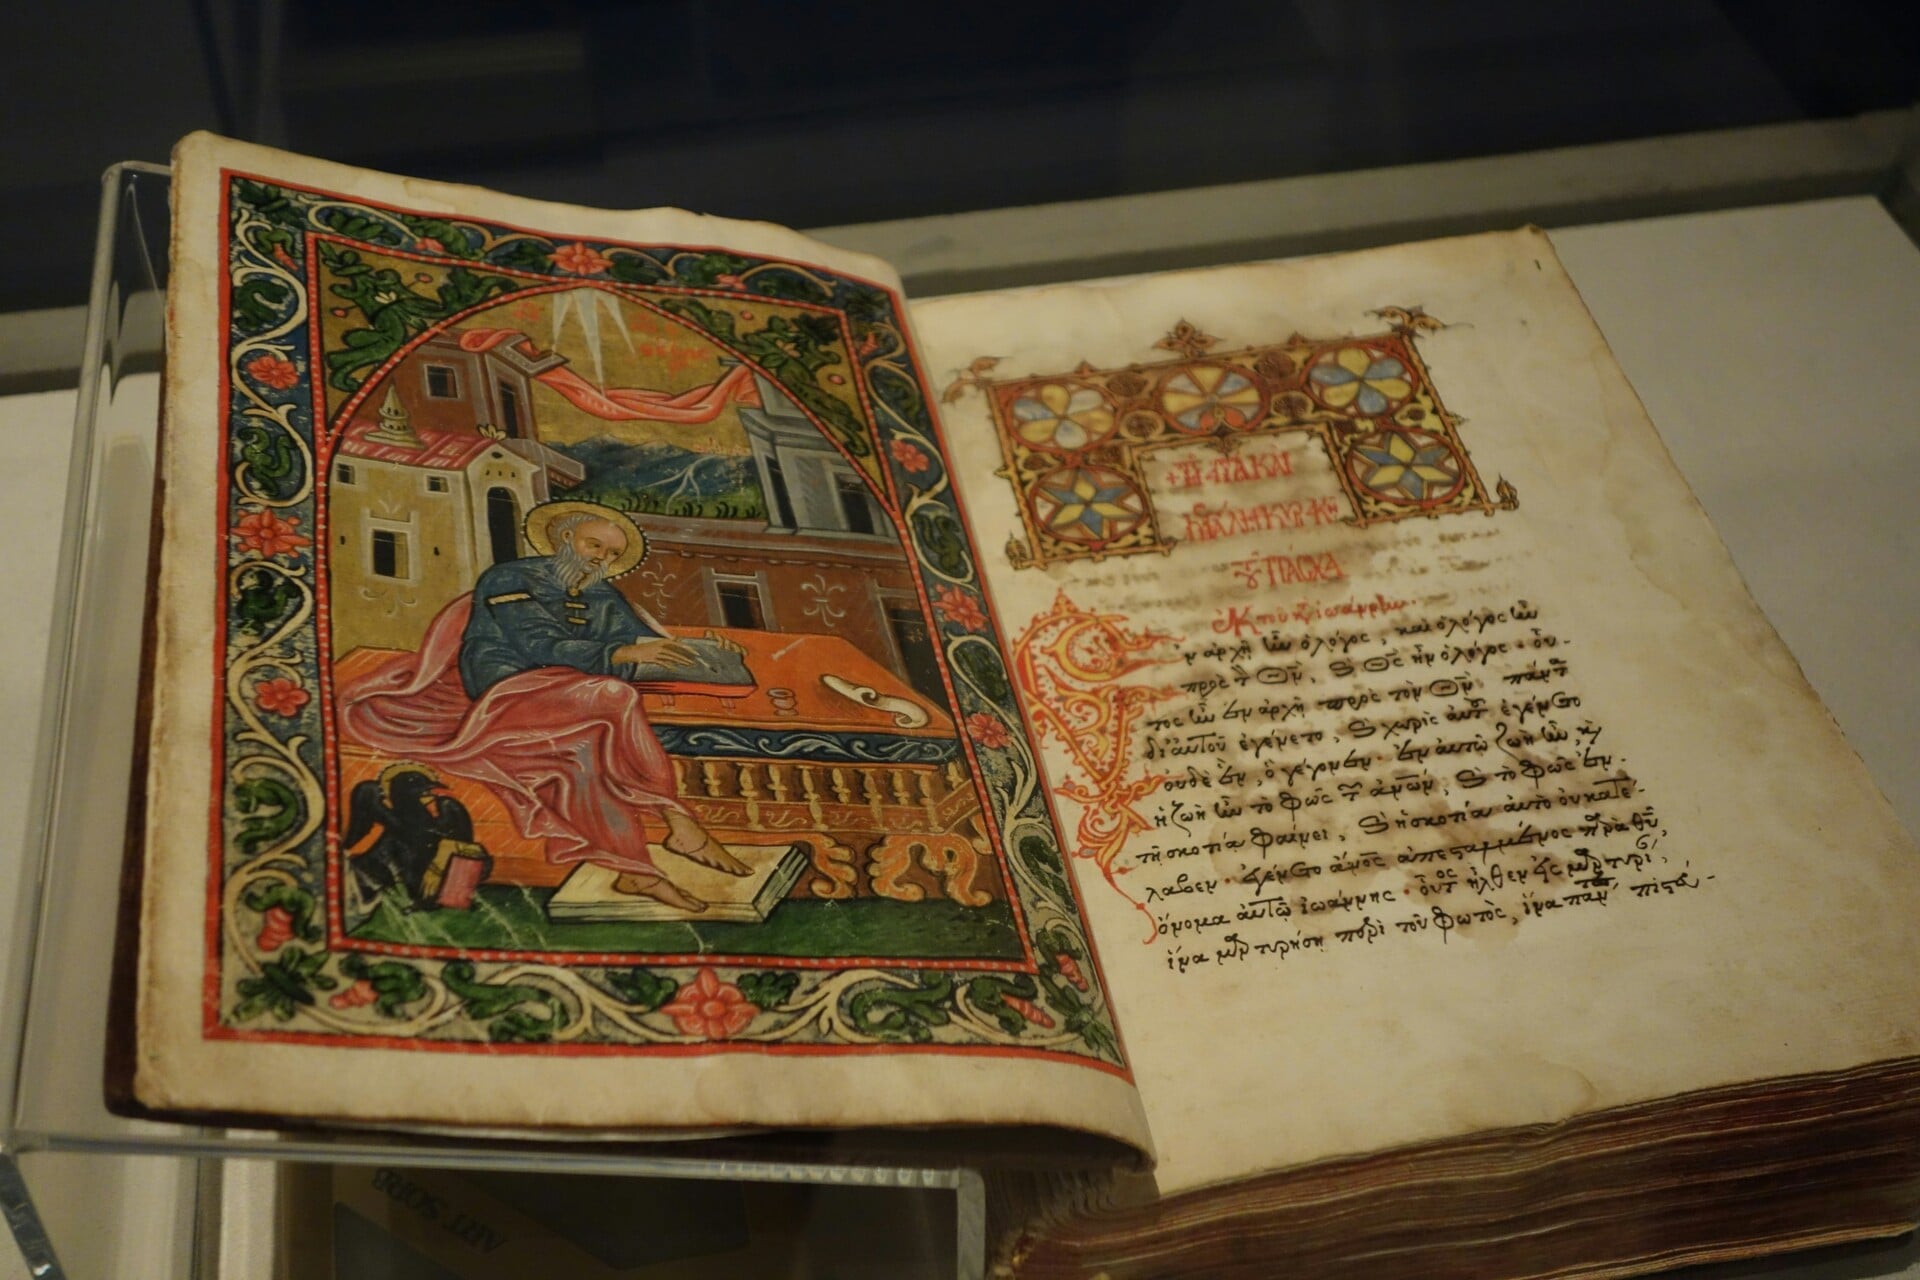 +ΤΗ ΑΓΙΑ ΚΑΙ
ΜΕΓΑΛΗ ΚΥΡΙΑΚΗ
τοῦ ΠΑΣΧΑ
ἐκ τοῦ κτ ἰωάννην.
Ἐν ἀρχῇ ἦν ὁ λόγος, καὶ ὁ λόγος ἦν
πρὸς τ Θν̅, ϗ Θς̅ ἦν ὁ λόγος · οὗ-
τος ἦν ἐν ἀρχῇ πρὸς τὸν Θν̅ πάντ
δι' αὐτοῦ ἐγένετο, ϗ χωρὶς αὐτ ἐγένετο
οὐδὲ ἕν, ὃ γέγονεν · ἐν αὐτῷ ζωὴ ἦν, ϗ
ἡ ζωὴ ἦν τὸ φῶς τ ἀνων̅, ϗ τὸ φῶς ἐν
τῇ σκοτία φαίνει, ϗ ἡ σκοτία αὐτὸ οὐ κατέ-
λαβεν · ἐγένετο ἄνος̅ ἀπεσταλμένος παρὰ θυ̅,
ὄνομα αὐτῷ ἰωάννης · οὗτος ἦλθεν εἰς μαρτυρί,
ἵνα μαρτυρήση περὶ τοῦ φωτὸς, ἵνα πάντ πιστεύ-
ART